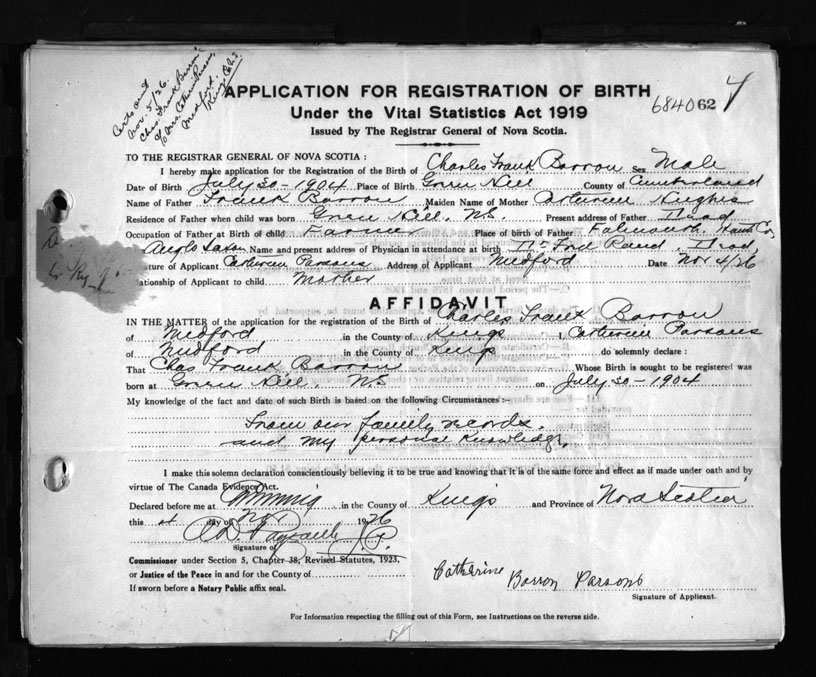 Certs out
Nov. 5/26.
Chas. Frank Barron
c/o Mrs. Catherine Parsons,
Medford.
Kings Co.
APPLICATION FOR REGISTRATION OF BIRTH
Under the Vital Statistics Act 1919
Issued by The Registrar General of Nova Scotia.
684062
TO THE REGISTRAR GENERAL OF NOVA SCOTIA :
I hereby make application for the Registration of the Birth of Charles Frank Barron Sex Male
Date of Birth July 30 - 1904 Place of Birth Green Hill County of Cumberland
Name of Father Frank Barron Maiden Name of Mother Catherine Hughes
Residence of Father when child was born Green Hill. NS. Present address of Father Dead
Occupation of Father at Birth of child Farmer Place of birth of Father Falmouth, Hants Co.
Anglo Saxon Name and present address of Physician in attendance at birth Dr Rand. Dead
ature of Applicant Catherine Parsons Address of Applicant Medford Date Nov 4/26
elationship of Applicant to child Mother
AFFIDAVIT
IN THE MATTER of the application for the registration of the Birth of Charles Frank Barron
of Medford in the County of Kings I, Catherine Parsons
of Medford in the County of Kings do solemnly declare :
That Chas Frank Barron Whose Birth is sought to be registered was
born at Green Hill. NS on July 30 - 1904
My knowledge of the fact and date of such Birth is based on the following Circumstances :-
From our family records.
and my personal knowledge.
I make this solemn declaration conscientiously believing it to be true and knowing that it is of the same force and effect as if made under oath and by
virtue of The Canada Evidence Act.
Declared before me at Canning in the County of Kings and Province of Nova Scotia
this 4 day of Nov 1926
Signature of
Commissioner under Section 5, Chapter 38, Revised Statutes, 1923,
or Justice of the Peace in and for the County of
If sworn before a Notary Public affix seal.
Catharine Barron Parsons
Signature of Applicant.
For Information respecting the filling out of this Form, see Instructions on the reverse side.